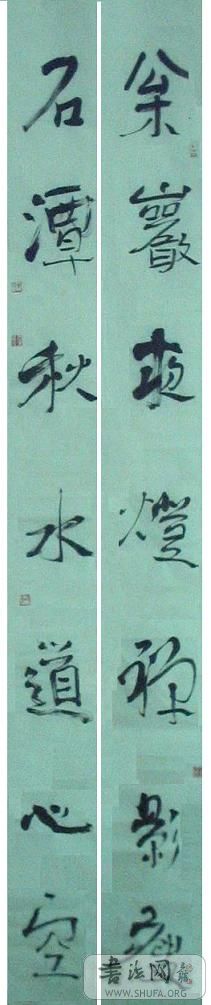 枀巖夜燈禪影瘦
石潭秋水道心空
書法网
WWW.SHUFA.ORG